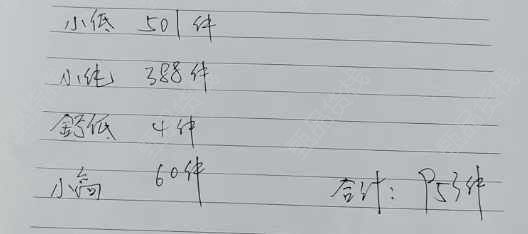 小低 501件
小纯 388件
钙低 4件
小高 60件 合计: 953件